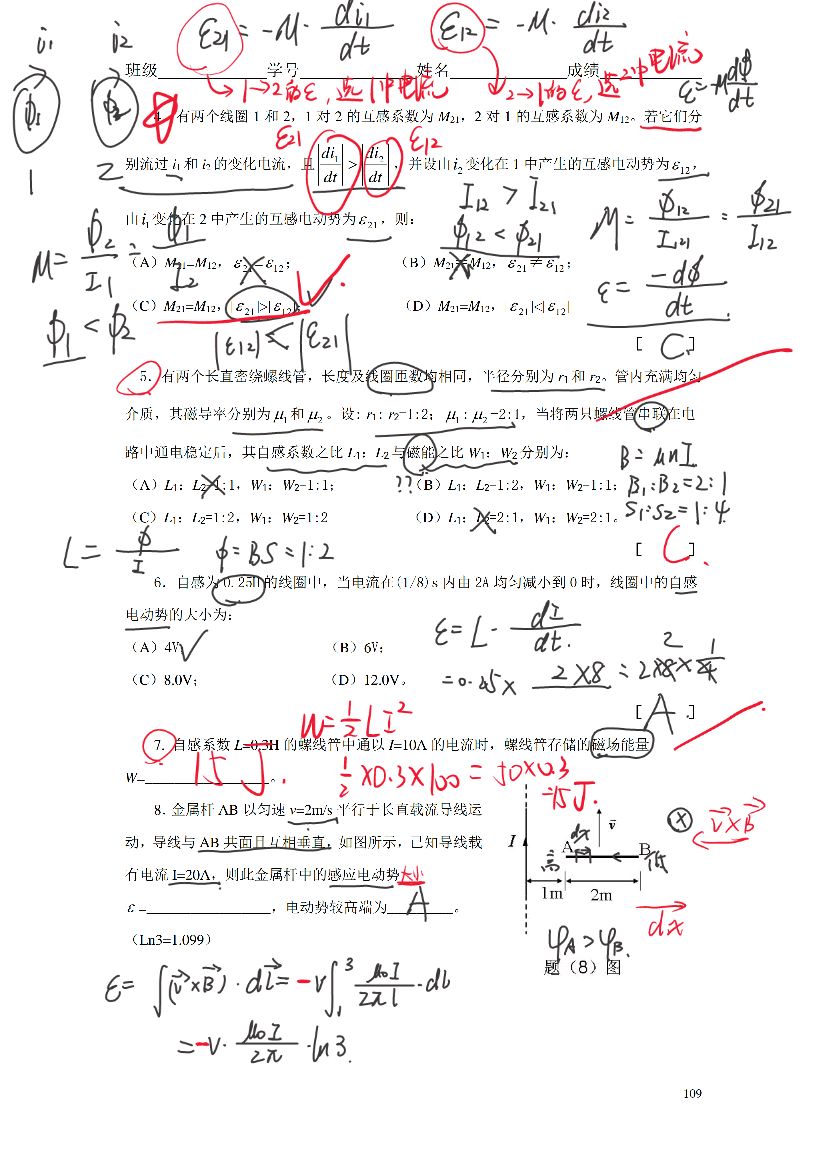 i₁ i₂ ε₂₁ = -M · di₁/dt ε₁₂ = -M · di₂/dt
班级 学号 姓名 成绩
1→2的ε, 选1中电流 2→1的ε, 选2中电流 ε=-M dφ/dt
φ₁ φ₂
1 2
4. 有两个线圈 1 和 2，1 对 2 的互感系数为 M21，2 对 1 的互感系数为 M12。若它们分
ε21 ε12
别流过 i₁ 和 i₂ 的变化电流，且 |di₁/dt| > |di₂/dt|，并设由 i₂ 变化在 1 中产生的互感电动势为 ε₁₂，
I₁₂ > I₂₁
由 i₁ 变化在 2 中产生的互感电动势为 ε₂₁，则：
φ₁₂ < φ₂₁ M = φ₁₂/I₂₁ = φ₂₁/I₁₂
M = φ₂/I₁ = φ₁/I₂
（A）M21=M12，ε₂₁=ε₁₂； （B）M21≠M12，ε₂₁≠ε₁₂；
ε = -dφ/dt
（C）M21=M12，|ε₂₁|>|ε₁₂|； （D）M21=M12，|ε₂₁|<|ε₁₂|
φ₁ < φ₂ |ε12| < |ε21|
[ C. ]
5. 有两个长直密绕螺线管，长度及线圈匝数均相同，半径分别为 r₁ 和 r₂。管内充满均匀
介质，其磁导率分别为 μ₁ 和 μ₂。设: r₁: r₂=1:2； μ₁: μ₂=2:1，当将两只螺线管串联在电
路中通电稳定后，其自感系数之比 L₁：L₂ 与磁能之比 W₁：W₂ 分别为:
B = μnI
（A）L₁：L₂=1:1，W₁：W₂=1:1； ??（B）L₁：L₂=1:2，W₁：W₂=1:1；
B₁:B₂=2:1
（C）L₁：L₂=1:2，W₁：W₂=1:2 （D）L₁：L₂=2:1，W₁：W₂=2:1。
S₁:S₂=1:4
L = φ/I φ=BS=1:2
[ C. ]
6. 自感为 0.25H 的线圈中，当电流在(1/8)s 内由 2A 均匀减小到 0 时，线圈中的自感
电动势的大小为:
ε = L· dI/dt.
（A）4V （B）6V；
（C）8.0V； （D）12.0V。
[ A ]
W=½LI²
7. 自感系数 L=0.3H 的螺线管中通以 I=10A 的电流时，螺线管存储的磁场能量
W= 15 J. 。
½ ×0.3×100 = 50×0.3
=15J.
8. 金属杆 AB 以匀速 v=2m/s 平行于长直载流导线运
动，导线与 AB 共面且互相垂直，如图所示，已知导线载
有电流 I=20A，则此金属杆中的感应电动势大小
ε= ，电动势较高端为 A 。
（Ln3=1.099）
I v dx v×B
高 A B 低
1m 2m
dx
φA>φB.
题（8）图
ε = ∫(v×B)·dl = -v∫₁³ μ₀I/2πl · dl
= -v· μ₀I/2π · ln3.
109